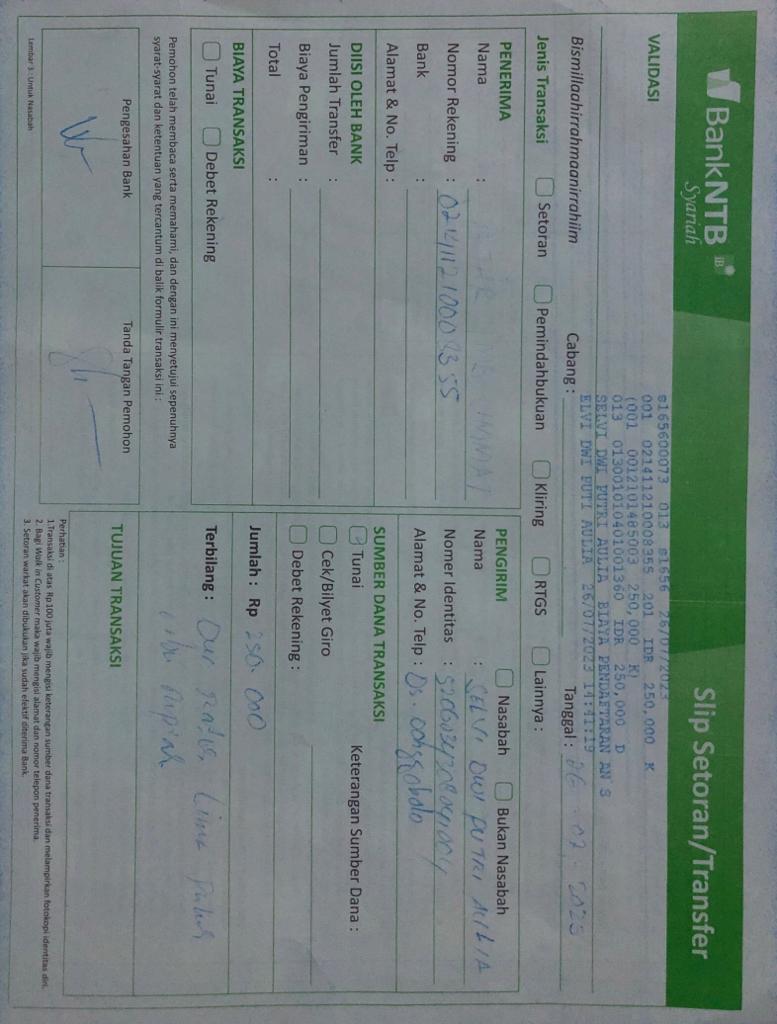 BankNTB
Syariah
iB
Slip Setoran/Transfer
VALIDASI
s165600073 013 s1656 26/07/2023
001 021411210008355 201 IDR 250,000 K
(001 0012101485003 250,000 K!
013 013001010401001360 IDR 250,000 D
SELVI DWI PUTRI AULIA BIAYA PENDAFTARAN AN S
ELVI DWI PUTI AULIA 26/07/2023 14:41:19
Bismillaahirrahmaanirrahiim
Cabang :
Tanggal : 26 - 07 - 2023
Jenis Transaksi
Setoran
Pemindahbukuan
Kliring
RTGS
Lainnya :
PENERIMA
Nama :
Nomor Rekening : 021411210008355
Bank :
Alamat & No. Telp :
PENGIRIM
Nasabah
Bukan Nasabah
Nama : SELVI DWI PUTRI AULIA
Nomer Identitas :
Alamat & No. Telp : Ds.
DIISI OLEH BANK
Jumlah Transfer :
Biaya Pengiriman :
Total :
SUMBER DANA TRANSAKSI
Tunai
Keterangan Sumber Dana :
Cek/Bilyet Giro
Debet Rekening :
BIAYA TRANSAKSI
Tunai
Debet Rekening
Jumlah : Rp 250.000
Terbilang : Dua Ratus Lima Puluh
Ribu Rupiah
Pemohon telah membaca serta memahami, dan dengan ini menyetujui sepenuhnya
syarat-syarat dan ketentuan yang tercantum di balik formulir transaksi ini :
TUJUAN TRANSAKSI
Pengesahan Bank
Tanda Tangan Pemohon
Perhatian :
1.Transaksi di atas Rp 100 juta wajib mengisi keterangan sumber dana transaksi dan melampirkan fotokopi identitas diri.
2. Bagi Walk in Customer maka wajib mengisi alamat dan nomor telepon penerima.
3. Setoran warkat akan dibukukan jika sudah efektif diterima Bank.
Lembar 3 : Untuk Nasabah